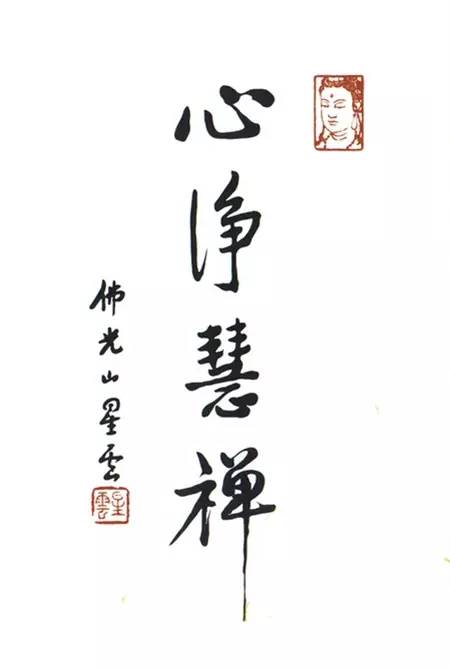 心淨慧禅
佛光山星雲
星雲